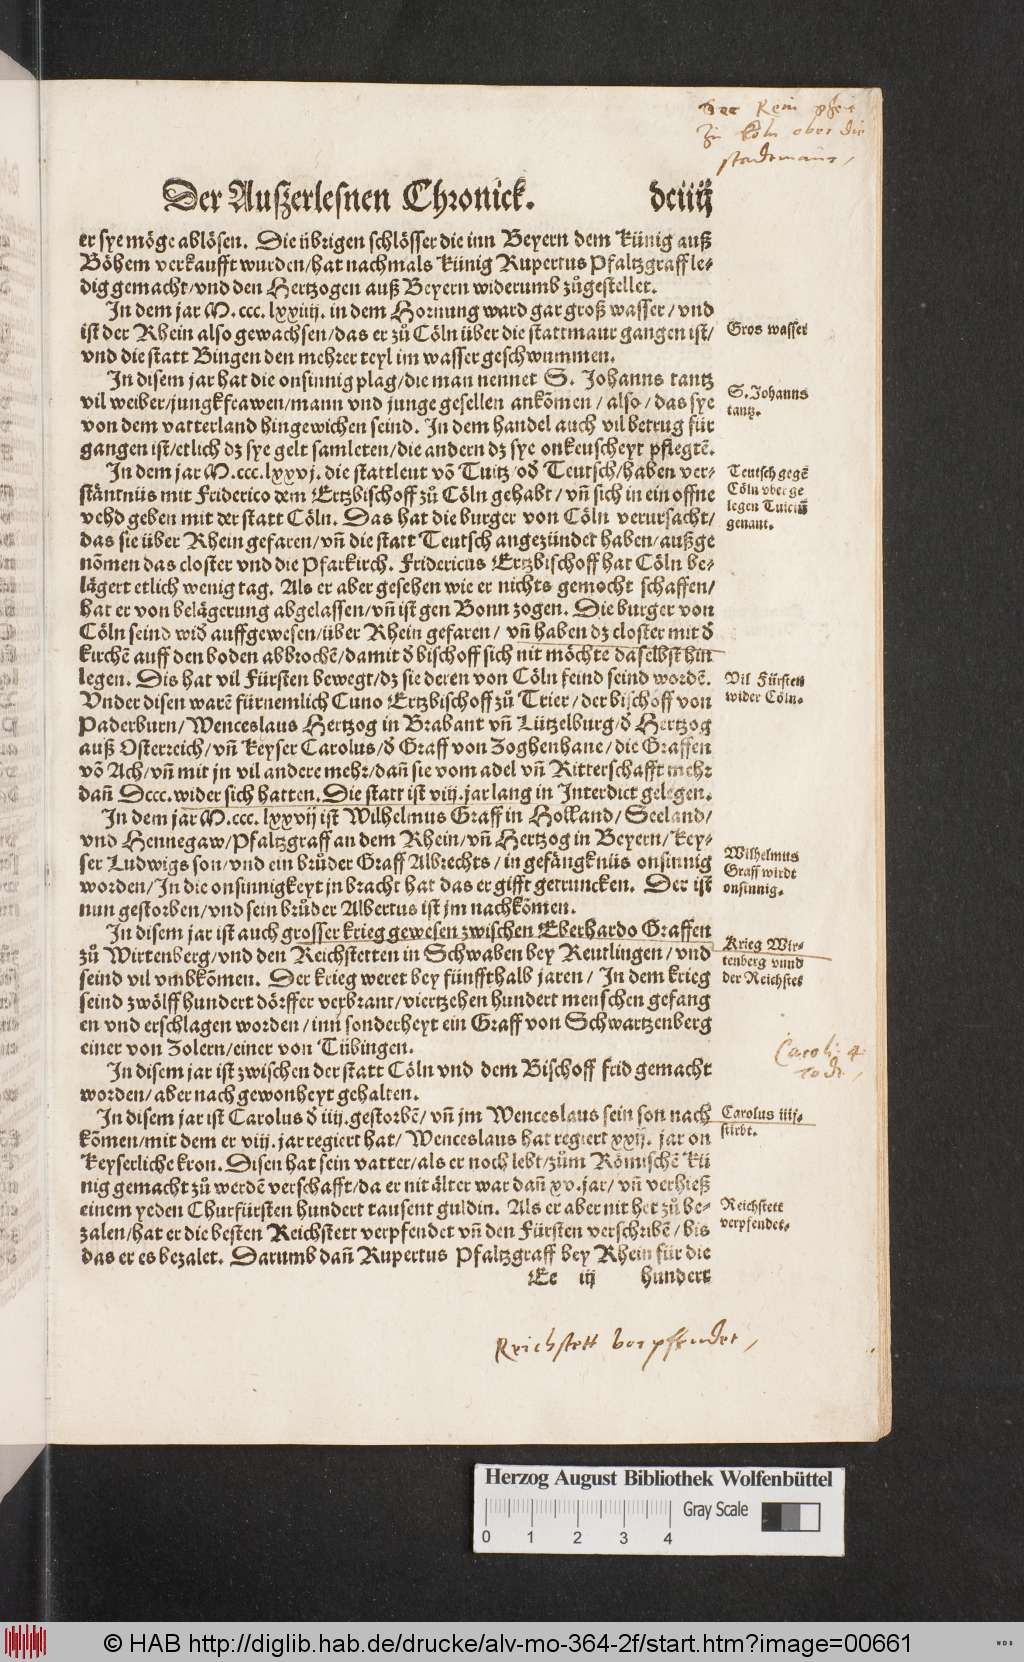 Der Rein
zu Köln ober die
stadtmaur /
Der Außerlesnen Chronick. dciiij
er sye möge ablösen. Die übrigen schlösser die inn Beyern dem künig auß
Böhem verkaufft wurden / hat nachmals künig Rupertus Pfaltzgraff le-
dig gemacht / vnd den Hertzogen auß Beyern widerumb zůgestellet.
In dem jar M. ccc. lxxiiij. in dem Hornung ward gar groß wasser / vnd
ist der Rhein also gewachsen / das er zů Cöln über die stattmaur gangen ist /
vnd die statt Bingen den mehrer teyl im wasser geschwummen.
Gros wasser
In disem jar hat die onsinnig plag / die man nennet S. Johanns tantz
vil weiber / jungkfrawen / mann vnd junge gesellen ankōmen / also / das sye
von dem vatterland hingewichen seind. In dem handel auch vil betrug für
gangen ist / etlich dz sye gelt samleten / die andern dz sye onkeuscheyt pflegtē.
S. Johanns
tantz.
In dem jar M. ccc. lxxvj. die stattleut vō Tuitz od̄ Teutsch / haben ver-
stäntnüs mit Friderico dem Ertzbischoff zů Cöln gehabt / vn̄ sich in ein offne
vehd geben mit der statt Cöln. Das hat die burger von Cöln verursacht /
das sie über Rhein gefaren / vn̄ die statt Teutsch angezündet haben / außge
nōmen das closter vnd die Pfarkirch. Fridericus Ertzbischoff hat Cöln be-
lägert etlich wenig tag. Als er aber gesehen wie er nichts gemocht schaffen /
hat er von belägerung abgelassen / vn̄ ist gen Bonn zogen. Die burger von
Cöln seind wid̄ auffgewesen / über Rhein gefaren / vn̄ haben dz closter mit d̄
kirchē auff den boden abbrochē / damit d̄ bischoff sich nit möchte daselbst hin
legen. Dis hat vil Fürsten bewegt / dz sie deren von Cöln feind seind wordē.
Vnder disen warē fürnemlich Cuno Ertzbischoff zů Trier / der bischoff von
Paderburn / Wenceslaus Hertzog in Brabant vn̄ Lützelburg / d̄ Hertzog
auß Osterreich / vn̄ keyser Carolus / d̄ Graff von Zoghenhane / die Graffen
vō Ach / vn̄ mit jn vil andere mehr / dan̄ sie vom adel vn̄ Ritterschafft mehr
dan̄ Dccc. wider sich hatten. Die statt ist viij. jar lang in Interdict gelegen.
Teutsch gegē
Cöln vber ge
legen Tuiciū
genant.
Vil Fürsten
wider Cöln.
In dem jar M. ccc. lxxvij ist Wilhelmus Graff in Holland / Seeland /
vnd Hennegaw / Pfaltzgraff an dem Rhein / vn̄ Hertzog in Beyern / key-
ser Ludwigs son / vnd ein brůder Graff Albrechts / in gefängknüs onsinnig
worden / In die onsinnigkeyt jn bracht hat das er gifft getruncken. Der ist
nun gestorben / vnd sein brůder Albertus ist jm nachkōmen.
Wilhelmus
Graff wirdt
onsinnig.
In disem jar ist auch grosser krieg gewesen zwischen Eberhardo Graffen
zů Wirtenberg / vnd den Reichstetten in Schwaben bey Reutlingen / vnd
seind vil vmbkōmen. Der krieg weret bey fünffthalb jaren / In dem krieg
seind zwölff hundert dörffer verbrant / viertzehen hundert menschen gefang
en vnd erschlagen worden / inn sonderheyt ein Graff von Schwartzenberg
einer von Zolern / einer von Tübingen.
Krieg Wir-
tenberg vnnd
der Reichstet
In disem jar ist zwischen der statt Cöln vnd dem Bischoff frid gemacht
worden / aber nach gewonheyt gehalten.
Caroli 4
todt /
In disem jar ist Carolus d̄ iiij. gestorbē / vn̄ jm Wenceslaus sein son nach
kōmen / mit dem er viij. jar regiert hat / Wenceslaus hat regiert xxij. jar on
keyserliche kron. Disen hat sein vatter / als er noch lebt / zům Römischē kü
nig gemacht zů werdē verschafft / da er nit älter war dan̄ xv. jar / vn̄ verhieß
einem yeden Churfürsten hundert tausent guldin. Als er aber nit het zů be-
zalen / hat er die besten Reichstett verpfendet vn̄ den Fürsten verschribē / bis
das er es bezalet. Darumb dan̄ Rupertus Pfaltzgraff bey Rhein für die
Carolus iiij.
stirbt.
Reichstett
verpfendet.
Ee iij hundert
Reichstett vorpfendet /
Herzog August Bibliothek Wolfenbüttel
Gray Scale
0 1 2 3 4
© HAB http://diglib.hab.de/drucke/alv-mo-364-2f/start.htm?image=00661